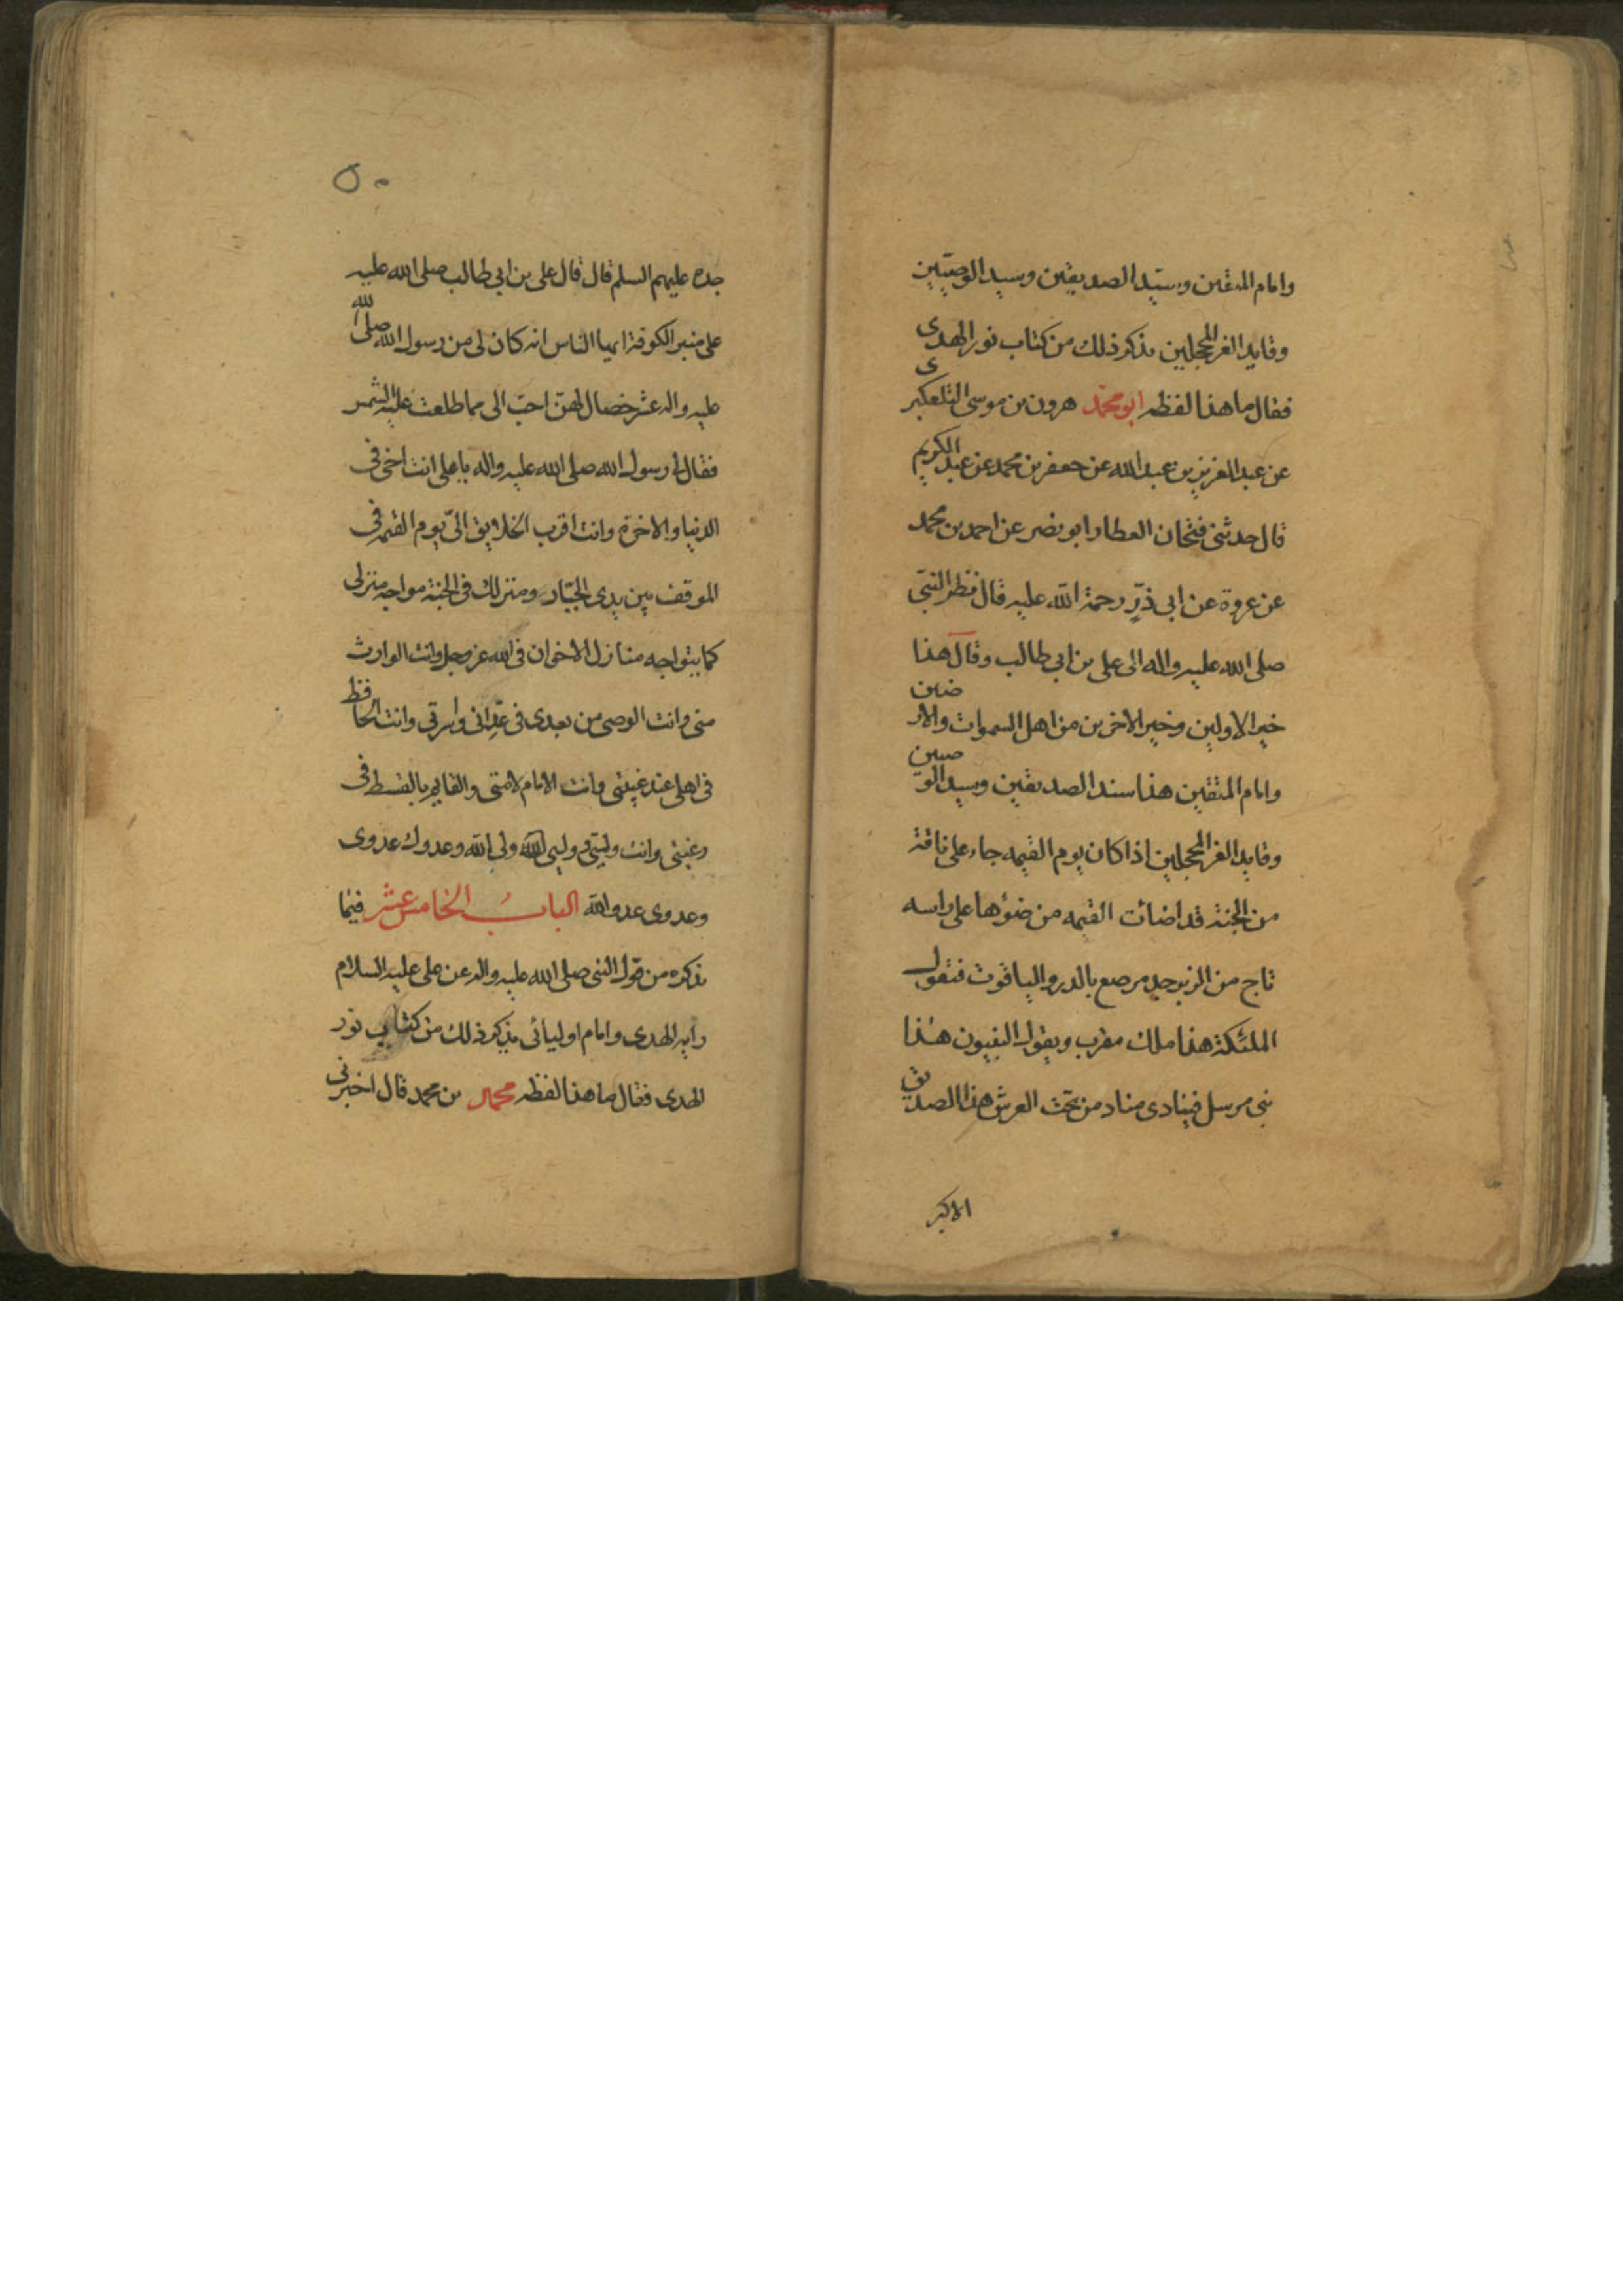 وامام المتقين وسيد الصديقين وسيد الوصيين
وقايد الغر المحجلين نذكر ذلك من كتاب نور الهدى
فقال ما هذا لفظه ابو محمد هرون بن موسى التلعكبرى
عن عبد العزيز بن عبد الله عن جعفر بن محمد عن عبد الكريم
قال حدثنى فتحان العطار ابو نصر عن احمد بن محمد
عن عروة عن ابى ذر رحمة الله عليه قال نظر النبى
صلى الله عليه واله الى على بن ابي طالب وقال هذا
خير الاولين وخير الاخرين من اهل السموات والارضين
وامام المتقين هذا سند الصديقين وسيد الوصيين
وقايد الغر المحجلين اذا كان يوم القيمه جاء على ناقة
من الجنة قد اضائت القيمه من ضوؤها على راسه
تاج من الزبرجد مرصع بالدر والياقوت فتقول
الملئكة هذا ملك مقرب ويقول النبيون هذا
نبى مرسل فينادى مناد من تحت العرش هذا الصديق
الاكبر
٥٠
جده عليهم السلم قال قال على بن ابي طالب صلى الله عليه
على منبر الكوفة ايها الناس انه كان لى من رسول الله صلى الله
عليه واله عشر خصال لهن احب الى مما طلعت عليه الشمس
فقال لى رسول الله صلى الله عليه واله يا على انت اخى فى
الدنيا والاخرة وانت اقرب الخلايق الىّ يوم القيمه فى
الموقف بين يدى الجبّار ومنزلك فى الجنة مواجه منزلى
كما يتواجه منازل الاخوان فى الله عز وجل وانت الوارث
منى وانت الوصى من بعدى فى عداتى واسرتى وانت الحافظ
فى اهلى عند غيبتى وانت الامام لامتى والقايم بالقسط فى
رعيتى وانت وليى ووليى ولى الله وعدوك عدوى
وعدوى عدو الله الباب الخامس عشر فيما
نذكره من قول النبى صلى الله عليه واله عن على عليه السلام
رايه الهدى وامام اوليائى نذكر ذلك من كتاب نور
الهدى فقال ما هذا لفظه محمد بن محمد قال اخبرنى